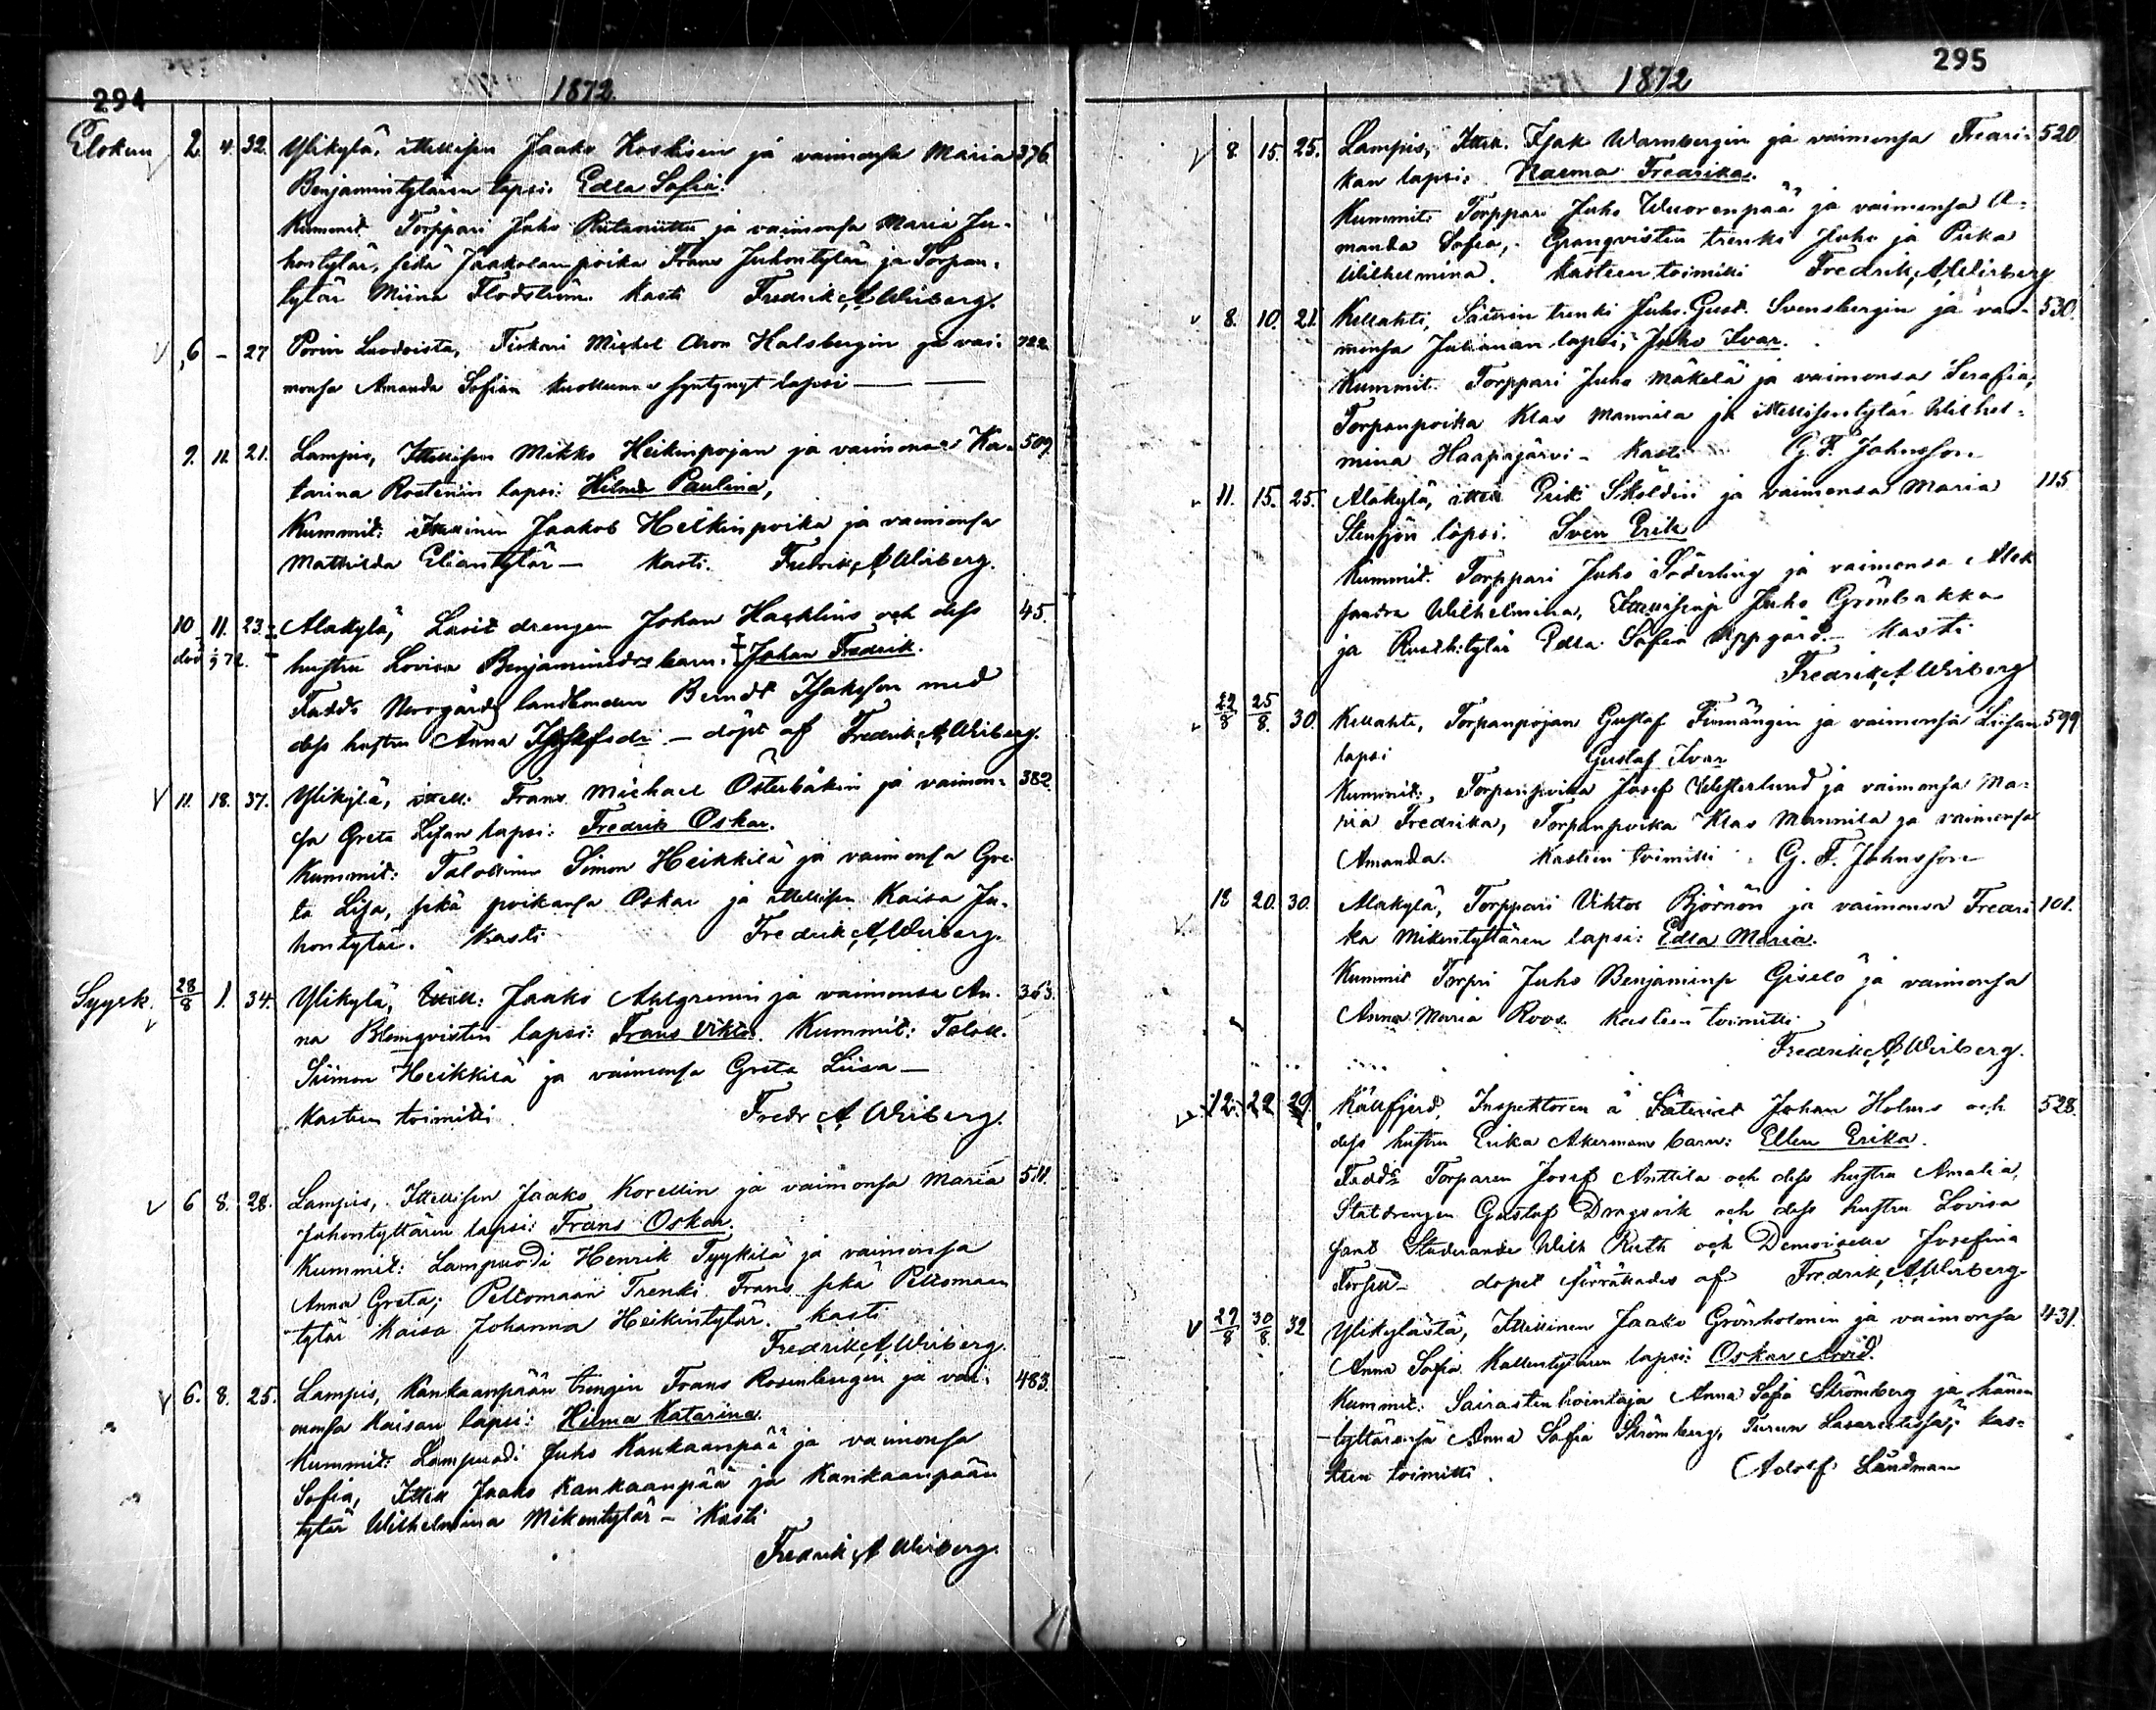 294
1872.
Elokuu 2 4. 32. Ylikylä, ittellisen Jaako Koskisen ja vaimonsa Maria 376.
Benjamintytären lapsi: Edla Sofia.
Kummit Torppari Juho Riitaniittu ja vaimonsa Maria Ju-
hontytär, sekä Jaakolan poika Frans Juhontytär ja Torpan-
tytär Miina Flodström. Kasti Fredrik A Wirberg.
6 – 27 Porin Luodoista, Fiskari Mickel Aron Halsbergin ja vai- 722
monsa Amanda Sofian kuolluna syntynyt lapsi — —
9. 11. 21. Lampis, Ittellisen Mikko Heikinpojan ja vaimonsa Ka- 509.
tarina Rostenin lapsi: Hilma Paulina,
Kummit: Ittellinen Jaakob Heikinpoika ja vaimonsa
Mathilda Eliantytär – Kasti. Fredrik A Wirberg.
10 11. 23. Alakylä, drengen Johan Hacklins och dess 45.
död 72. hustru Lovisa Benjaminsdrs barn. † Johan Fredrik.
Fadd: Norrgårds landbonden Berndt Isaksson med
dess hustru Anna – döpt af Fredrik A Wirberg.
11. 18. 37. Ylikylä, ittell: Frans Michael Österbäkin ja vaimon- 382.
sa Greta Lisan lapsi: Fredrik Oskar.
Kummit: Talollinen Simon Heikkilä ja vaimonsa Gre-
ta Lisa, sekä poikansa Oskar ja ittellisen Kaisa Ju-
hontytär. Kasti Fredrik A Wirberg.
Syysk. 28/8 1. 34. Ylikylä, Ittell: Jaako Ahlgrenin ja vaimonsa An- 363.
na Blomqvistin lapsi: Frans Viktor. Kummit: Taloll.
Siimon Heikkilä ja vaimonsa Greta Liisa –
Kasteen toimitti Fredr A Wirberg.
6 8. 28. Lampis, Ittellisen Jaako Korellin ja vaimonsa Maria 511.
Juhontyttären lapsi: Frans Oskar.
Kummit: Lampuodi Henrik Tyykilä ja vaimonsa
Anna Greta; Peltomaan Trenki Frans sekä Peltomaan
tytär Kaisa Johanna Heikintytär. Kasti
Fredrik A Wirberg.
6. 8. 25. Lampis, Kankaanpään trengin Frans Rosenbergin ja vai- 483.
monsa Kaisan lapsi: Hilma Katarina.
Kummit: Lampuodi Juho Kankaanpää ja vaimonsa
Sofia, Ittell Jaako Kankaanpää ja Kankaanpään
tytär Wilhelmiina Mikontytär – Kasti
Fredrik A Wirberg.
295
1872
8. 15. 25. Lampis, Ittell. Isak Warnbergin ja vaimonsa Fredri- 520
kan lapsi: Naema Fredrika.
Kummit: Torppari Juho Wuorenpää ja vaimonsa A-
manda Sofia, Granqvistin trenki Juho ja Piika
Wilhelmina. Kasteen toimitti Fredrik A Wirberg
8. 10. 21. Kellahti, Säterin trenki Juho Gust. Svensbergin ja vai- 530.
monsa Julianan lapsi; Juho Ivar.
Kummit. Torppari Juho Mäkelä ja vaimonsa Serafia;
Torpanpoika Klas Mannila ja ittellisentytär Wilhel-
mina Haapajärvi – Kasti G. F. Johnsson
11. 15. 25. Alakylä, ittell Erik Sköldin ja vaimonsa Maria 115
Stensjön lapsi. Sven Erik
Kummit. Torppari Juho Söderling ja vaimonsa Alek
sandra Wilhelmina, Juho Grönbakka
ja Rusth:tytär Edla Sofia Uppgård – Kasti
Fredrik A Wirberg
22/8 25/8. 30. Kellahti, Torpanpojan Gustaf Finnängin ja vaimonsa Liisan 599
lapsi Gustaf Ivar
Kummit: Torpanpoika Josef Westerlund ja vaimonsa Ma-
ria Fredrika, Torpanpoika Klas Mannila ja vaimonsa
Amanda. Kasteen toimitti G. F. Johnsson
18 20. 30. Alakylä, Torppari Viktor Björnön ja vaimonsa Fredri 101.
ka Mikontyttären lapsi: Edla Maria.
Kummit Torpri Juho Benjaminp Giselö ja vaimonsa
Anna Maria Roos. Kasteen toimitti
Fredrik A Wirberg.
12. 22 29. Källfjerd, Inspektoren å Säteriet Johan Holms och 528.
dess hustru Erika Akermans barn: Ellen Erika.
Fadd: Torparen Josef Anttila och dess hustru Amalia,
Statdrengen Gustaf Dragsvik och dess hustru Lovisa
samt Studerande Wilh Ruth och Demoiselle Josefina
dopet förrättades af Fredrik A Wirberg.
27/8 30/8. 32 Ylikylästä, Ittellinen Jaako Grönholmin ja vaimonsa 431.
Anna Sofia Kallentytären lapsi: Oskar Arvid.
Kummit: Sairasten hointaja Anna Sofia Strömberg ja hänen
tyttärensä Anna Sofia Strömberg, Turun Lasaretissa; kas-
teen toimitti. Adolf Landman